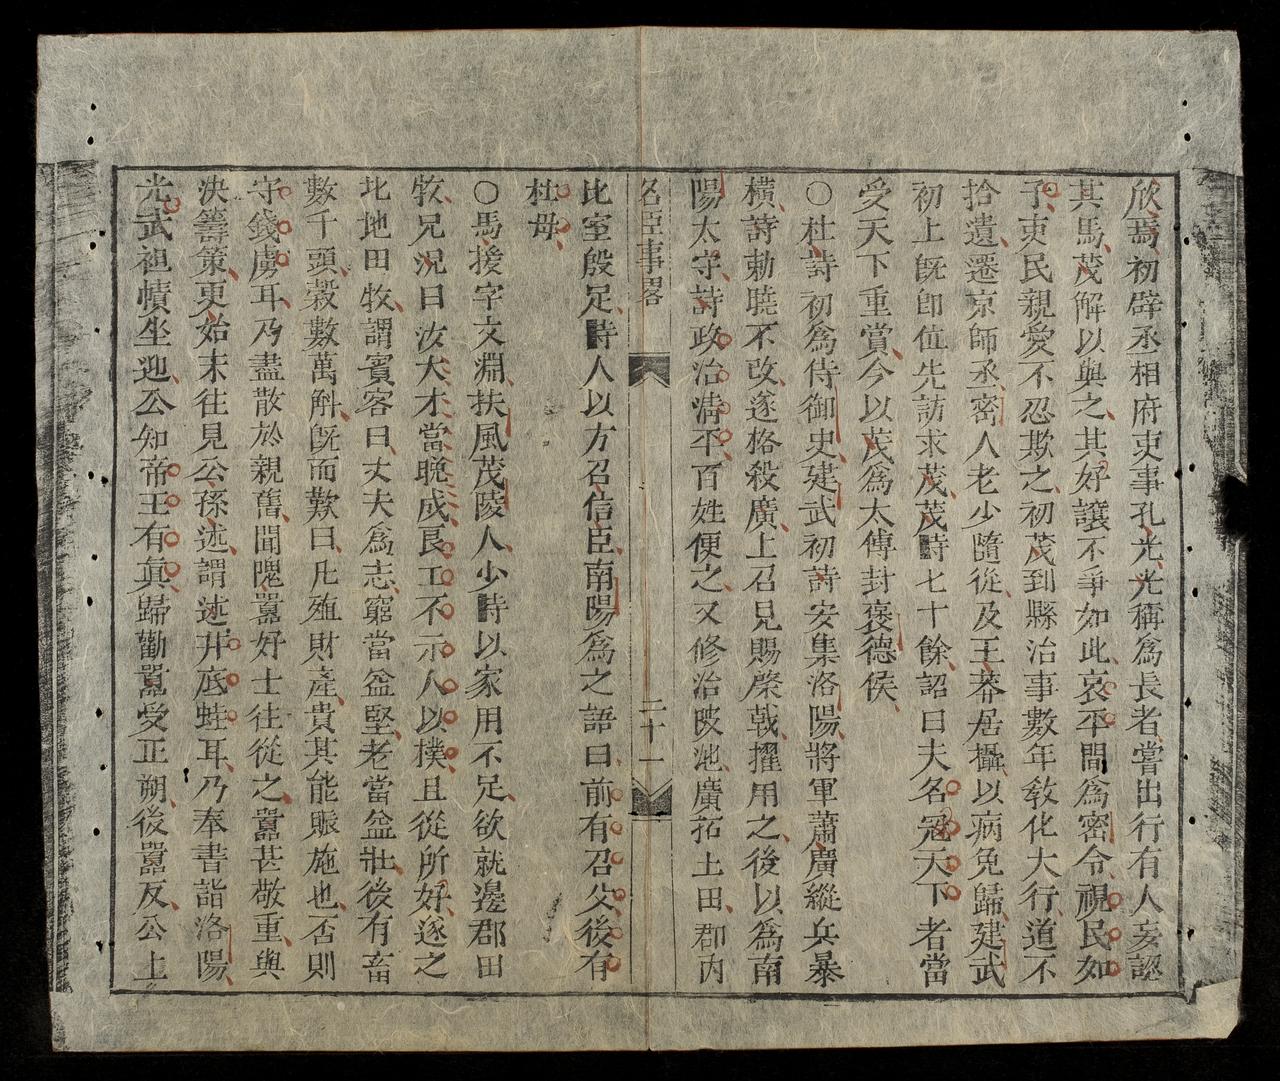 欣焉初辟丞相府吏事孔光光稱爲長者嘗出行有人妄認
其馬茂解以與之其好讓不爭如此哀平間爲密令視民如
子吏民親愛不忍欺之初茂到縣治事數年敎化大行道不
拾遺遷京師丞密人老少隨從及王莽居攝以病免歸建武
初上旣卽位先訪求茂茂時七十餘詔曰夫名冠天下者當
受天下重賞今以茂爲太傅封褒德侯
〇杜詩初爲侍御史建武初詩安集洛陽將軍蕭廣縱兵暴
橫詩勅曉不改遂格殺廣上召見賜棨戟擢用之後以爲南
陽太守詩政治淸平百姓便之又修治陂池廣拓土田郡內
名臣事畧 二十一
比室殷足時人以方召信臣南陽爲之語曰前有召父後有
杜母
〇馬援字文淵扶風茂陵人少時以家用不足欲就邊郡田
牧兄況曰汝大才當晚成良工不示人以樸且從所好遂之
北地田牧謂賓客曰丈夫爲志窮當益堅老當益壯後有畜
數千頭穀數萬斛旣而歎曰凡殖財產貴其能賑施也否則
守錢虜耳乃盡散於親舊聞隗囂好士往從之囂甚敬重與
決籌策更始末往見公孫述謂述井底蛙耳乃奉書詣洛陽
光武袒幘坐迎公知帝王有眞歸勸囂受正朔後囂反公上